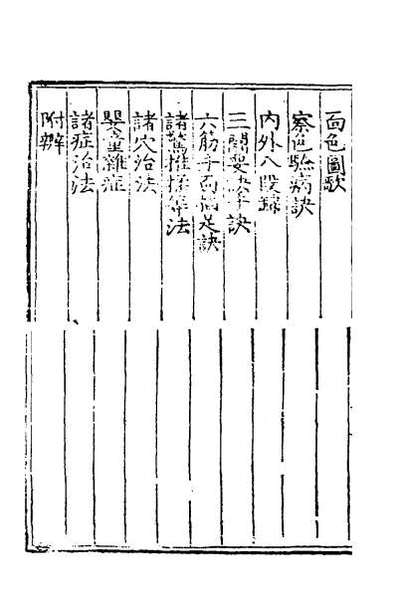 面色圖歌
察色驗病訣
内外八段錦
三關要訣手訣
六筋手面筋足訣
諸驚推揉等法
諸穴治法
嬰童雜症
諸症治法
附辨